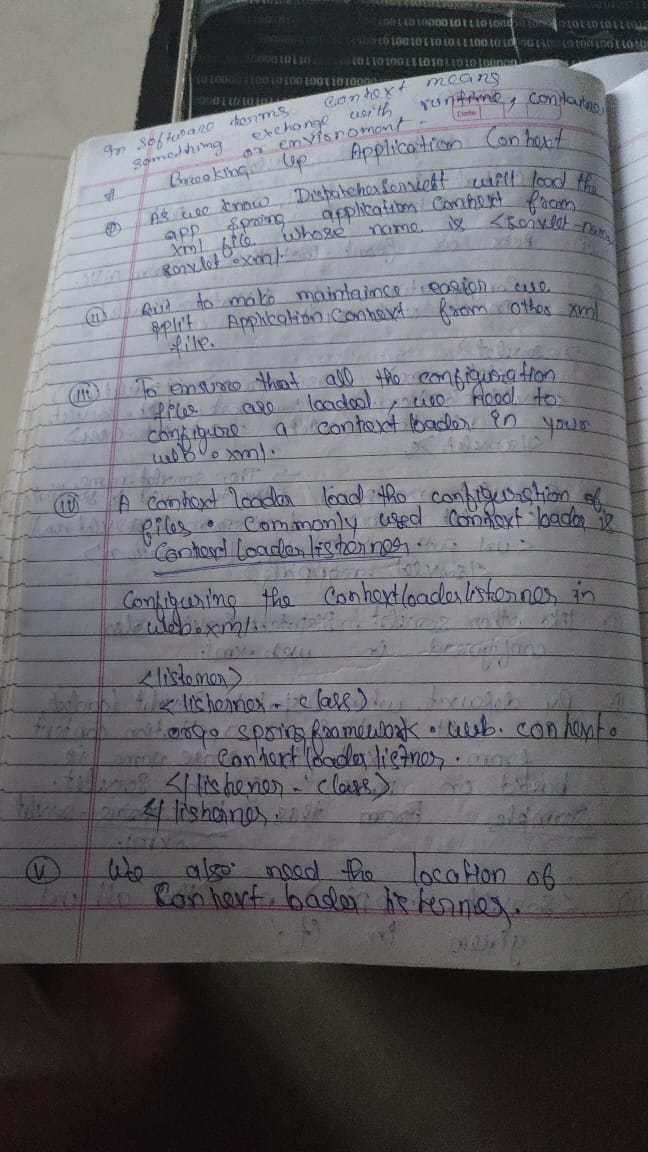 In software terms context means
something exchange with runtime, container
or environment.
Breaking Up Application Context
As we know DispatcherServlet will load the
app spring application context from
xml file whose name is <servlet-name
servlet.xml.
(ii) But to make maintaince easier we
split Application Context from other xml
file.
(iii) To ensure that all the configuration
files are loaded, we need to
configure a context loader in your
web.xml.
(iv) A context loader load the configuration of
files. Commonly used context loader is
Context Loader listerner.
Configuring the Contextloaderlisterner in
web.xml:
<listener>
<listherner-class>
org.springframework.web.context.
Contextloaderlistner.
</listhener-class>
</listhener.
(v) We also need the location of
Context loader listerner.
Date